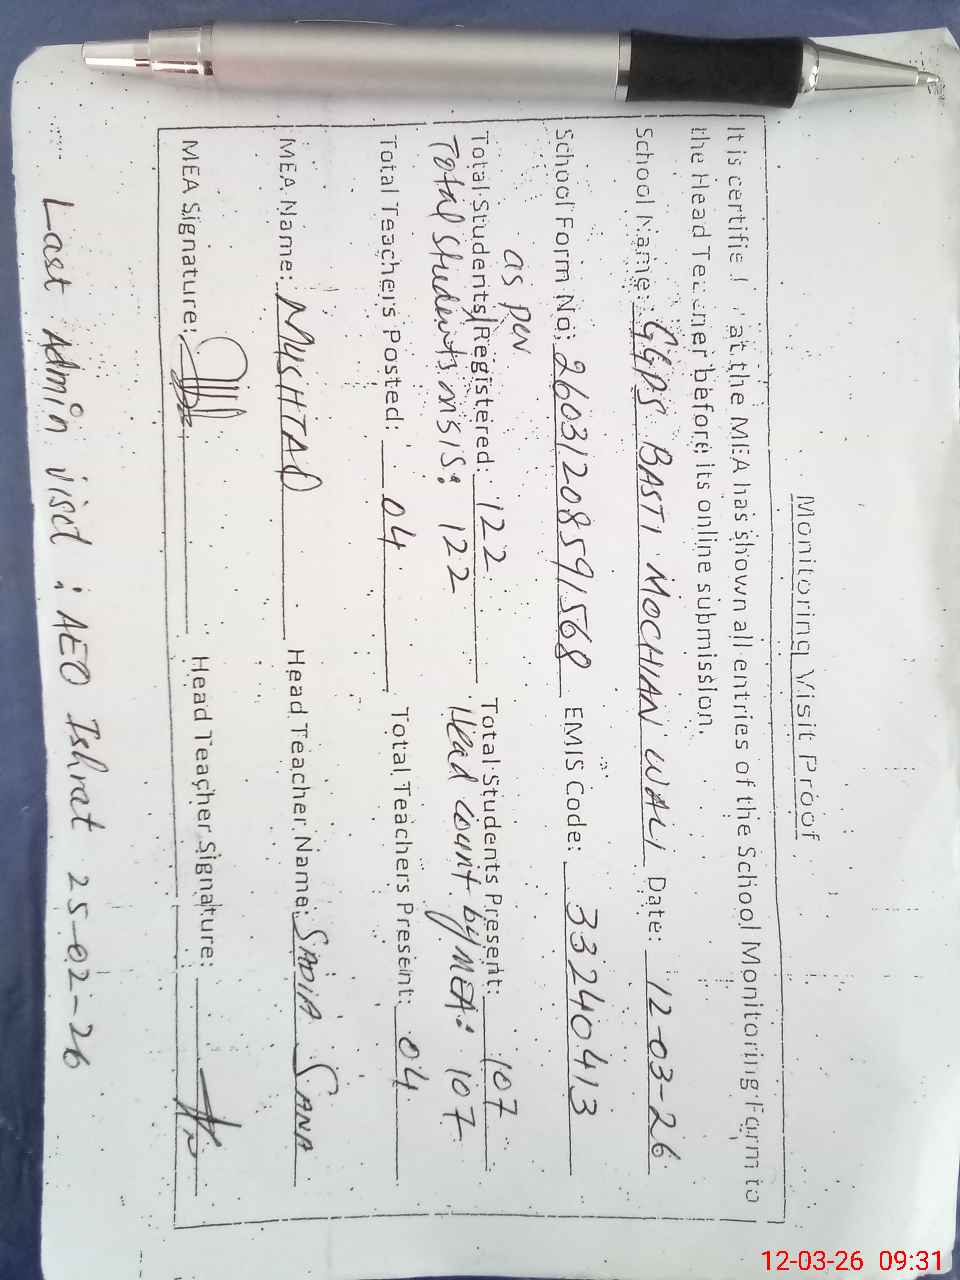 Monitoring Visit Proof
It is certified that the MEA has shown all entries of the School Monitoring Form to
the Head Teacher before its online submission.
School Name: GGPS BASTI MOCHIAN WALI Date: 12-03-26
School Form No: 260312085591568 EMIS Code: 33240413
as per
Total Students Registered: 122 Total Students Present: 107
Total students in SIS: 122 Head count by MEA: 107
Total Teachers Posted: 04 Total Teachers Present: 04
MEA Name: MUSHTAQ Head Teacher Name: SADIA SANA
MEA Signature: Head Teacher Signature:
Last Admin visit: AEO Ishrat 25-02-26
12-03-26 09:31